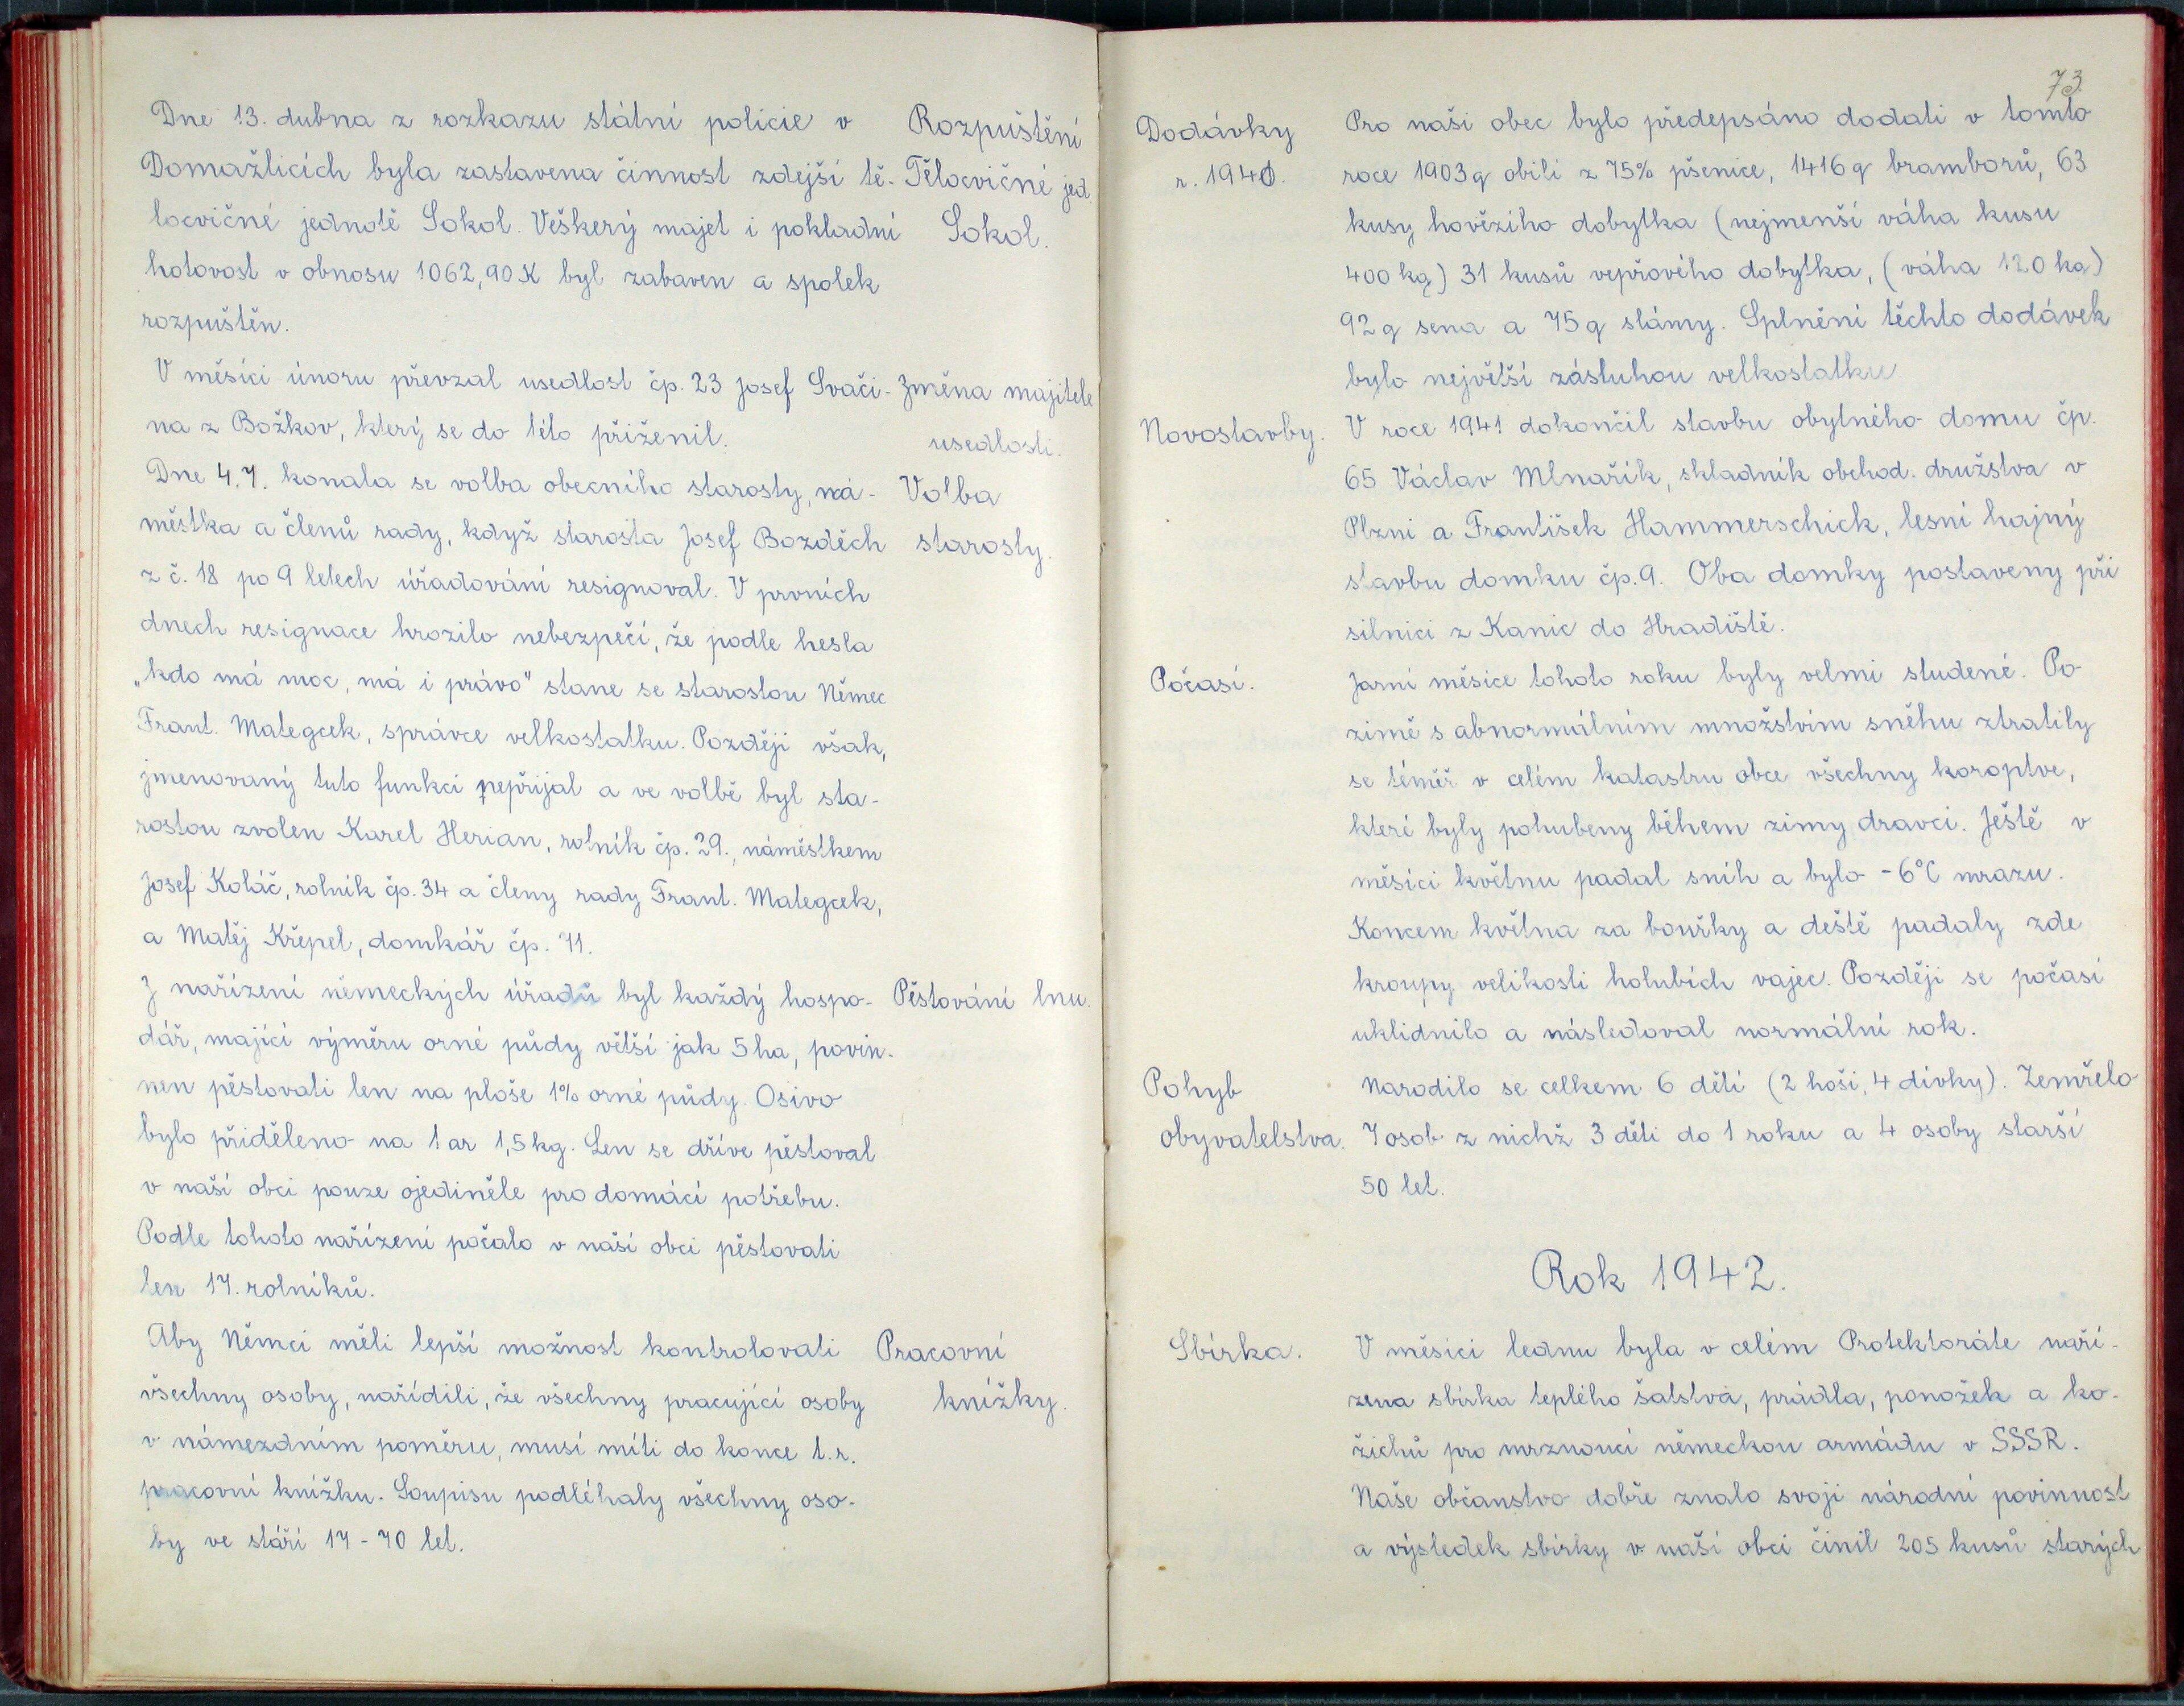 Dne 13. dubna z rozkazu státní policie v
Rozpuštění
Domažlicích byla zastavena činnost zdejší tě-
Tělocvičné jed.
locvičné jednotě Sokol. Veškerý majet i pokladní
Sokol.
hotovost v obnosu 1062,90 K byl zabaven a spolek
rozpuštěn.
V měsíci únoru převzal usedlost čp. 23 Josef Svači-
Změna majitele
na z Božkov, který se do této přiženil.
usedlosti.
Dne 4.7. konala se volba obecního starosty, ná-
Volba
městka a členů rady, když starosta Josef Bozděch
starosty.
z č. 18 po 9 letech úřadování resignoval. V prvních
dnech resignace hrozilo nebezpečí, že podle hesla
„kdo má moc, má i právo" stane se starostou Němec
Frant. Mategcek, správce velkostatku. Později však,
jmenovaný tuto funkci nepřijal a ve volbě byl sta-
rostou zvolen Karel Herian, rolník čp. 29., náměstkem
Josef Koláč, rolník čp. 34 a členy rady Frant. Mategcek,
a Matěj Křepel, domkář čp. 71.
Z nařízení německých úřadů byl každý hospo-
Pěstování lnu.
dář, mající výměru orné půdy větší jak 5 ha, povin-
nen pěstovati len na ploše 1% orné půdy. Osivo
bylo přiděleno na 1 ar 1,5 kg. Len se dříve pěstoval
v naší obci pouze ojediněle pro domácí potřebu.
Podle tohoto nařízení počalo v naší obci pěstovati
len 17. rolníků.
Aby Němci měli lepší možnost kontrolovati
Pracovní
všechny osoby, nařídili, že všechny pracující osoby
knížky.
v námezdním poměru, musí míti do konce t.r.
pracovní knížku. Soupisu podléhaly všechny oso-
by ve stáří 17-70 let.
73
Dodávky
Pro naši obec bylo předepsáno dodati v tomto
r. 1941.
roce 1903 q obilí z 75% pšenice, 1416 q bramborů, 63
kusy hovězího dobytka (nejmenší váha kusu
400 kg) 31 kusů vepřového dobytka, (váha 120 kg)
92 q sena a 75 q slámy. Splnění těchto dodávek
bylo největší zásluhou velkostatku
Novostavby.
V roce 1941 dokončil stavbu obytného domu čp.
65 Václav Mlnařík, skladník obchod. družstva v
Plzni a František Hammerschick, lesní hajný
stavbu domku čp. 9. Oba domky postaveny při
silnici z Kanic do Hradiště.
Počasí.
Jarní měsíce tohoto roku byly velmi studené. Po
zimě s abnormálním množstvím sněhu ztratily
se téměř v celém katastru obce všechny koroptve,
které byly pohubeny během zimy dravci. Ještě v
měsíci květnu padal sníh a bylo -6°C mrazu.
Koncem května za bouřky a deště padaly zde
kroupy velikosti holubích vajec. Později se počasí
uklidnilo a následoval normální rok.
Pohyb
Narodilo se celkem 6 dětí (2 hoši, 4 dívky). Zemřelo
obyvatelstva.
7 osob z nichž 3 děti do 1 roku a 4 osoby starší
50 let.
Rok 1942.
Sbírka.
V měsíci lednu byla v celém Protektoráte naří-
zena sbírka teplého šatstva, prádla, ponožek a ko-
žichů pro mrznoucí německou armádu v SSSR.
Naše občanstvo dobře znalo svoji národní povinnost
a výsledek sbírky v naší obci činil 205 kusů starých